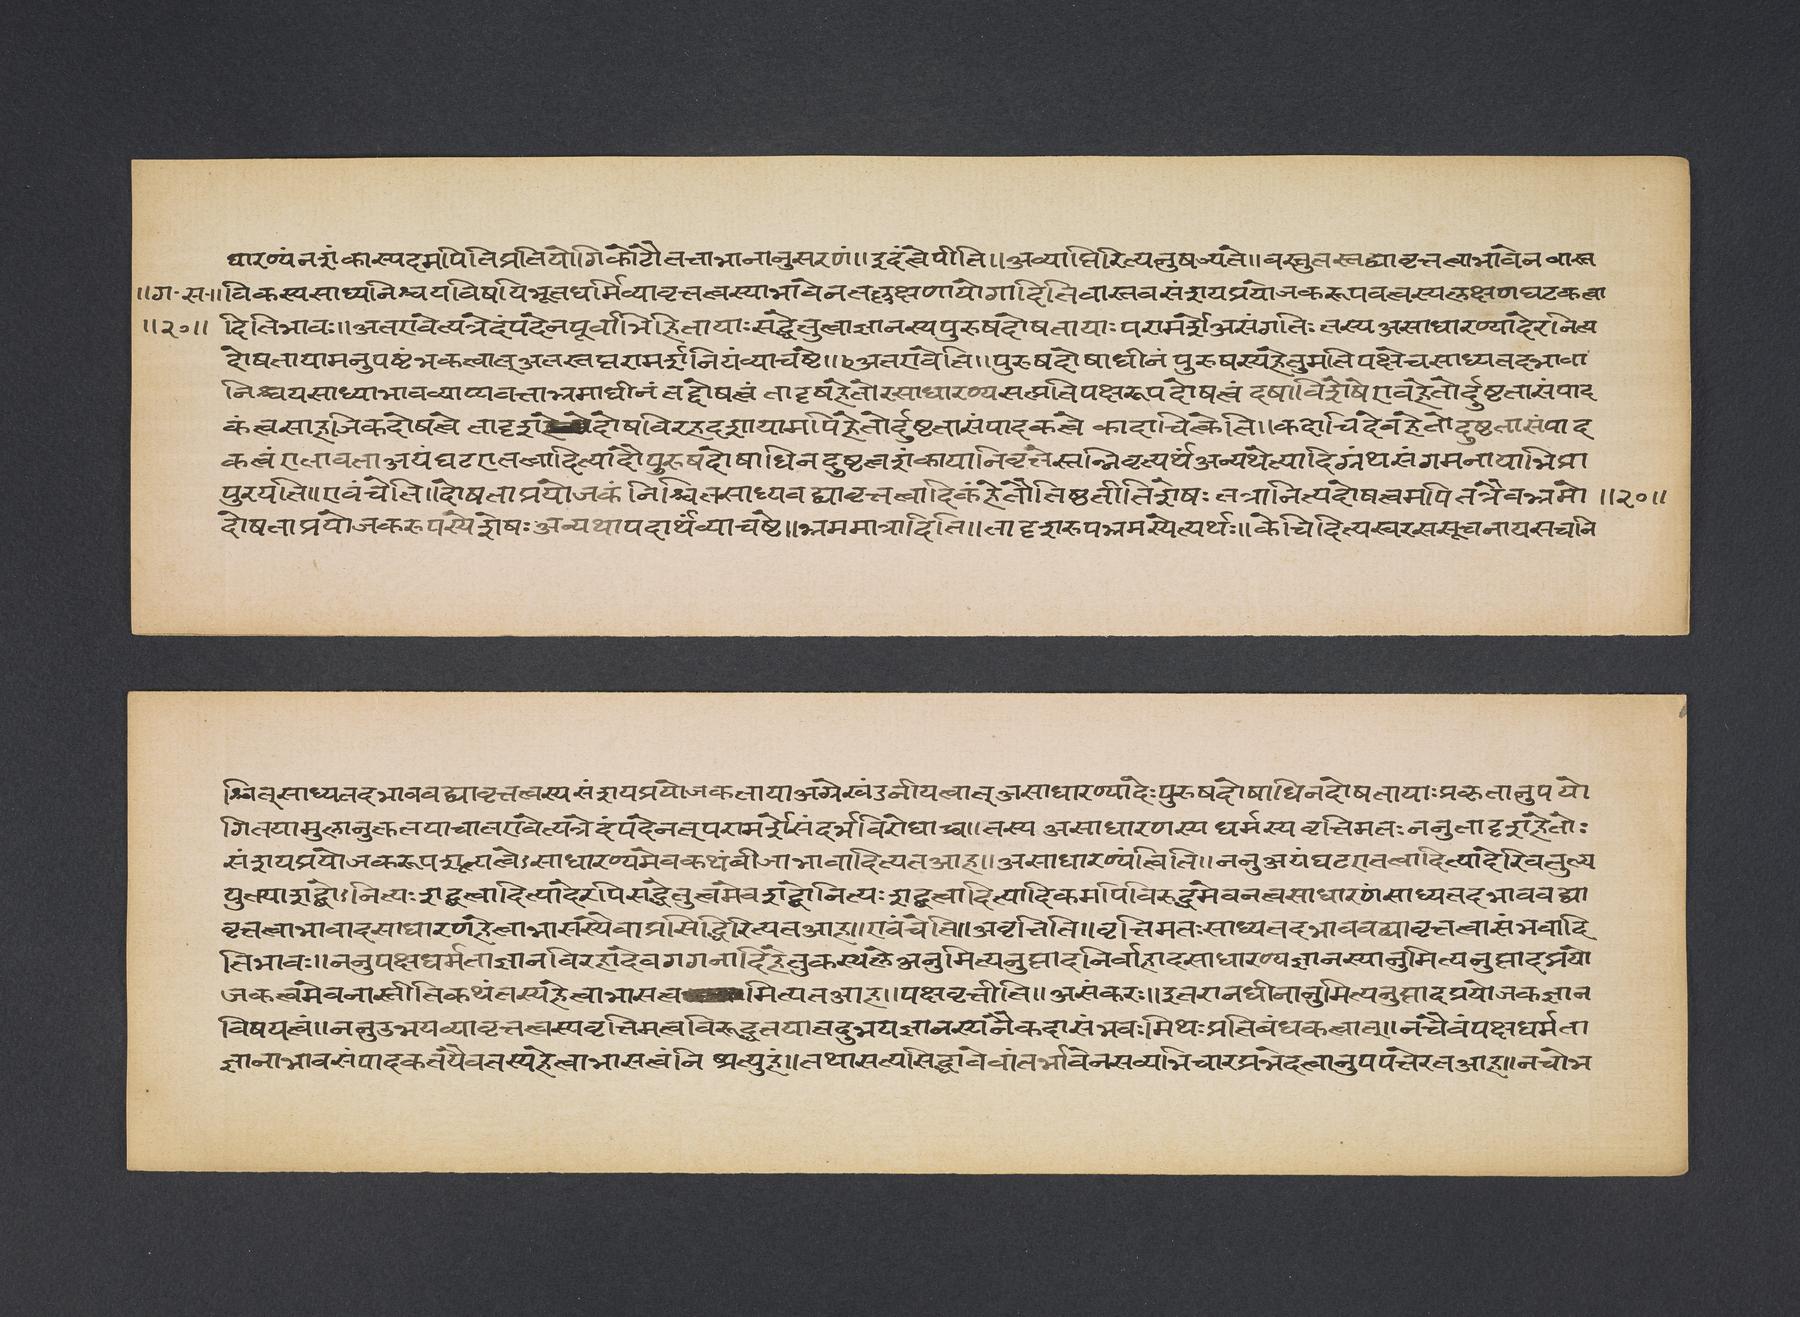 धारण्यं न शंकास्पदमपि तिप्रतियोगिकोटौ तत्ताभानानुसरणं॥इदं त्वेपीति॥अव्याप्तिरित्यनुषज्यते॥वस्तुतस्तद्व्यावृत्तत्वाभावेन वास्त
॥ग॰स॰॥ विकस्यसाध्यनिश्चयविषयिभूतधर्मिव्यावृत्तत्वस्याभावेनतल्लक्षणायोगादितिवास्तवसंशयप्रयोजकरूपवत्वस्यलक्षणघटकत्वा
॥२०॥ दितिभावः॥अतएवेत्यत्रेदंपदेनपूर्वाभिहितायाः सद्धेतुत्वाज्ञानस्यपुरुषदोषतायाः परामर्शेअसंगतिः तस्य असाधारण्यादेरनित्य
दोषतायामनुपष्टंभकत्वात्अतस्तत्परामर्शनियंव्याचष्टे॥अतएवेति॥पुरुषदोषाधीनं पुरुषस्यहेतुमतिपक्षेचसाध्यतदभावा
निश्चयसाध्याभावव्याप्यवत्ताभ्रमाधीनं तद्दोषत्वं तादृषहेतोरसाधारण्यसत्प्रतिपक्षरूपदोषत्वं दषाविशेषेएवहेतोर्दुष्टतासंपाद
कंत्वसाहजिकदोषत्वे तादृश दोषविरहदशायामपिहेतोर्दुष्टतासंपादकत्वे कादाचित्केति॥कदाचिदेवहेतोदुष्टतासंपाद
कत्वंएतावताअयंघटएतत्वादित्यादौपुरुषदोषाधिनदुष्टत्वशंकायानिवृत्तेस्तन्निवृत्यर्थअन्यथेत्यादिग्रंथसंगमनायाभिप्रा
पुरयति॥एवंचेति॥दोषताप्रयोजकं निश्चितसाध्यवद्व्यावृत्तत्वादिकंहेतौतिष्ठतीतिशेषः तत्रानित्यदोषत्वमपितत्रैवभ्रमो ॥२०॥
दोषताप्रयोजकरूपस्येशेषः अन्यथापदार्थंव्याचष्टे॥भ्रममात्रादिति॥तादृशरूपभ्रमस्येत्यर्थः॥केचिदित्यस्वरससूचनायसचनि
श्चित्साध्यतदभाववद्व्यावृत्तत्वस्य संशयप्रयोजकतायाअग्रेखंडनीयत्वात्असाधारण्यादेःपुरुषदोषाधिनदोषतायाःप्रकृतानुपयो
गितयामुक्तानुक्ततयाचातएवेत्यत्रेदंपदेनतत्परामर्शेसंदर्भविरोधाच्च॥तस्य असाधारणस्य धर्मस्य वृत्तिमतः ननुतादृशहेतोः
संशयप्रयोजकरूपशून्यत्वेऽसाधारण्यमेवकथंबीजाभावादित्यतआह॥असाधारण्यंत्विति॥ननुअयंघटएतत्वादित्यादेरिवतुल्य
युतयाशब्दोऽनित्यःशब्दत्वादित्यादेरपिसद्धेतुत्वमेवशब्दोनित्यःशब्दत्वादित्यादिकमपिविरुद्धमेवनत्वसाधारणंसाध्यतदभाववद्व्या
वृत्तत्वाभावादसाधारणहेत्वाभासस्यैवाप्रसिद्धिरित्यतआह॥एवंचेति॥अवृत्तिति॥वृत्तिमतःसाध्यतदभाववद्व्यावृत्तत्वासंभवादि
तिभावः॥ननुपक्षधर्मताज्ञानविरहादेवगगनादिहेतुकस्थलेअनुमित्यनुत्पादनिर्वाहादसाधारण्यज्ञानस्यानुमित्यनुत्पादप्रयो
जकत्वमेवनास्तीतिकथंतस्यहेत्वाभासत्व मित्यतआह॥पक्षवृत्तीति॥असंकरः॥इतरानधीनानुमित्यनुत्पादप्रयोजकज्ञान
विषयत्वं॥ननुउभयव्यावृत्तत्वस्यवृत्तिमत्वविरुद्धतयातदुभयज्ञानस्यनैकदासंभवःमिथःप्रतिबंधकत्वात्॥नचैवंपक्षधर्मता
ज्ञानाभावसंपादकतयैवतस्यहेत्वाभासत्वंनि ष्प्रत्युहं॥तथासत्यसिद्धावेवांतर्भावेनसव्यभिचारप्रभेदत्वानुपपत्तेरतआह॥नचोभ